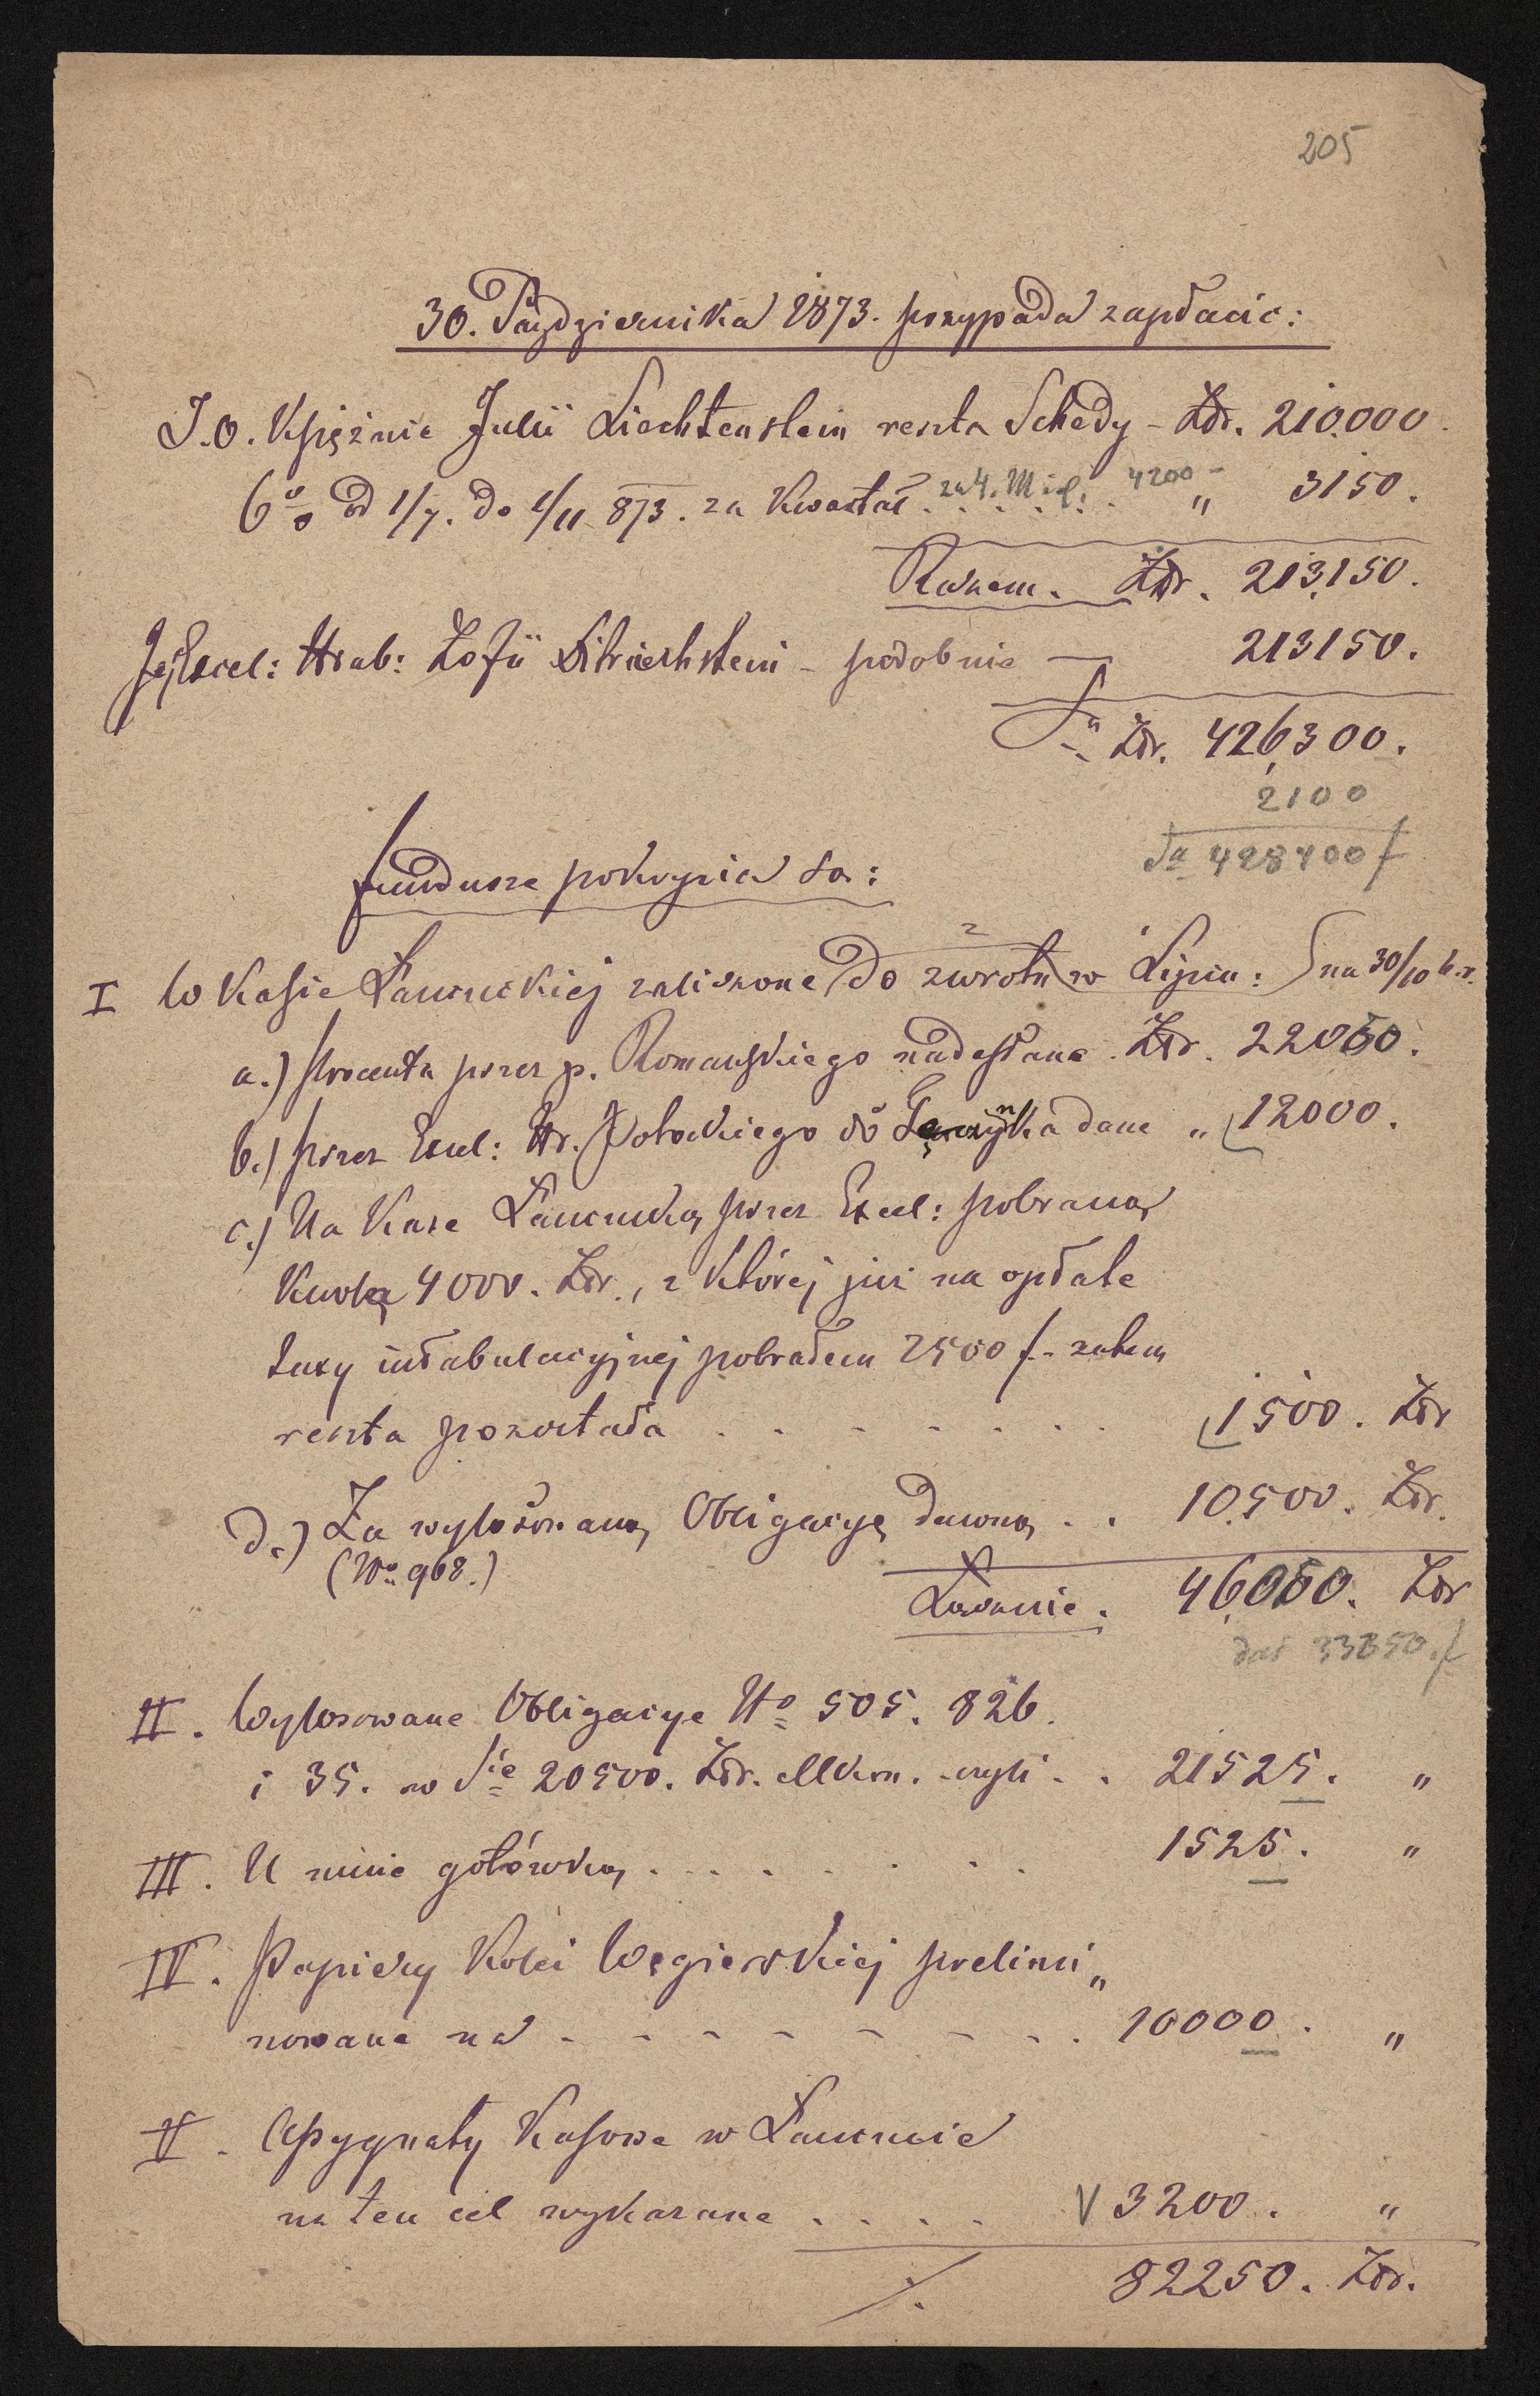 205
30. Października 1873. przypada zapłacić:
J.O. Księżnie Julii Liechtenstein reszta Schedy - Złr. 210.000.
6% od 1/7. do 1/11 873. za Kwartał . za 4. Mies: 4200 - " 3150.
Razem. Złr. 213,150.
Jej Excel: Hrab: Zofii Ditriechstein - podobnie — 213150.
Sa Złr. 426,300.
2100
Sa 428400 f
fundusze pokrycia są:
I W Kasie Łańcuckiej zaliczone do zwrotu w Lipcu: na 30/10 b.r.
a.) procenta przez p. Romańskiego nadesłane . Złr. 22050.
b.) przez Excel: Hr. Potockiego do Tęczynka dane " 12000.
c.) Na Kasę Łańcucką przez Excel: pobraną
Kwotę 4000. Złr., z której już na opłatę
taxy intabulacyjnej pobrałem 2500 f. - zatem
reszta pozostała . . . . . . . 1500. Złr
d.) Za wylosowaną Obligacyę dawną . . 10,500. Złr.
(No 968.)
Łącznie. 46,050. Złr
dał 33550. f
II. Wylosowane Obligacye No 505. 826.
i 35. w Sie 20500. Złr. MKon. - czyli . . 21525. "
III. U mnie gotówką . . . . . . . 1525. "
IV. Papiery Kolei Węgierskiej prelimi„
nowane na . . . . . . . . 10000. "
V. Assygnaty Kasowe w Łańcucie
na ten cel wykazane . . . . V 3200. "
82250. Złr.
./.